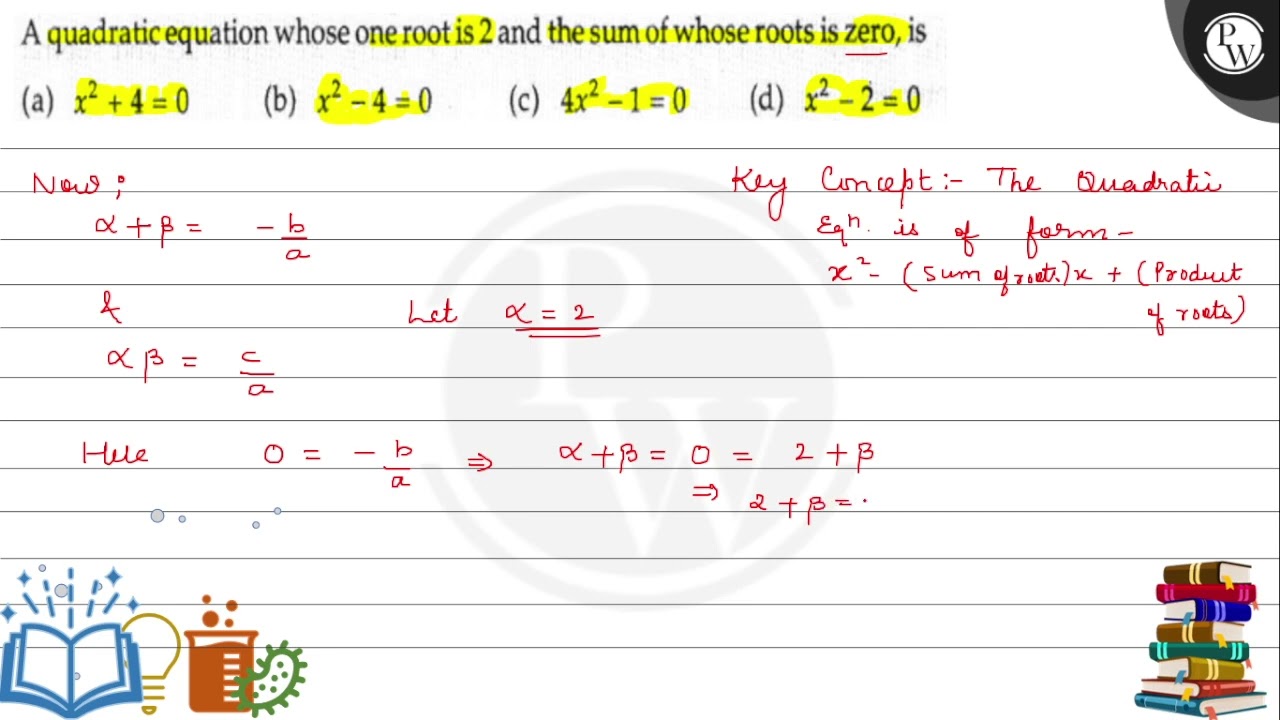 A quadratic equation whose one root is 2 and the sum of whose roots is zero, is
(a) x² + 4 = 0 (b) x² − 4 = 0 (c) 4x² − 1 = 0 (d) x² − 2 = 0
PW
Now;
α + β = − b/a
&
αβ = c/a
Let α = 2
Key Concept:- The Quadratic
Eqⁿ. is of form -
x² - (Sum of roots)x + (Product
of roots)
Here 0 = − b/a ⇒ α + β = 0 = 2 + β
⇒ 2 + β =
PW